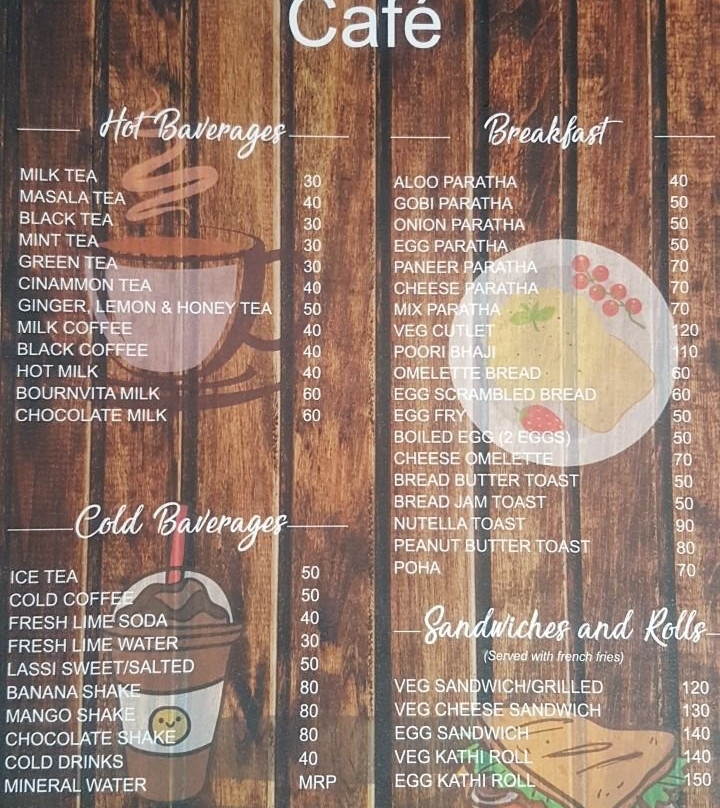 Café
Hot Baverages
MILK TEA 30
MASALA TEA 40
BLACK TEA 30
MINT TEA 30
GREEN TEA 30
CINAMMON TEA 40
GINGER, LEMON & HONEY TEA 50
MILK COFFEE 40
BLACK COFFEE 40
HOT MILK 40
BOURNVITA MILK 60
CHOCOLATE MILK 60
Cold Baverages
ICE TEA 50
COLD COFFEE 50
FRESH LIME SODA 40
FRESH LIME WATER 30
LASSI SWEET/SALTED 50
BANANA SHAKE 80
MANGO SHAKE 80
CHOCOLATE SHAKE 80
COLD DRINKS 40
MINERAL WATER MRP
Breakfast
ALOO PARATHA 40
GOBI PARATHA 50
ONION PARATHA 50
EGG PARATHA 50
PANEER PARATHA 70
CHEESE PARATHA 70
MIX PARATHA 70
VEG CUTLET 120
POORI BHAJI 110
OMELETTE BREAD 60
EGG SCRAMBLED BREAD 60
EGG FRY 50
BOILED EGG (2 EGGS) 50
CHEESE OMELETTE 70
BREAD BUTTER TOAST 50
BREAD JAM TOAST 50
NUTELLA TOAST 90
PEANUT BUTTER TOAST 80
POHA 70
Sandwiches and Rolls
(Served with french fries)
VEG SANDWICH/GRILLED 120
VEG CHEESE SANDWICH 130
EGG SANDWICH 140
VEG KATHI ROLL 140
EGG KATHI ROLL 150